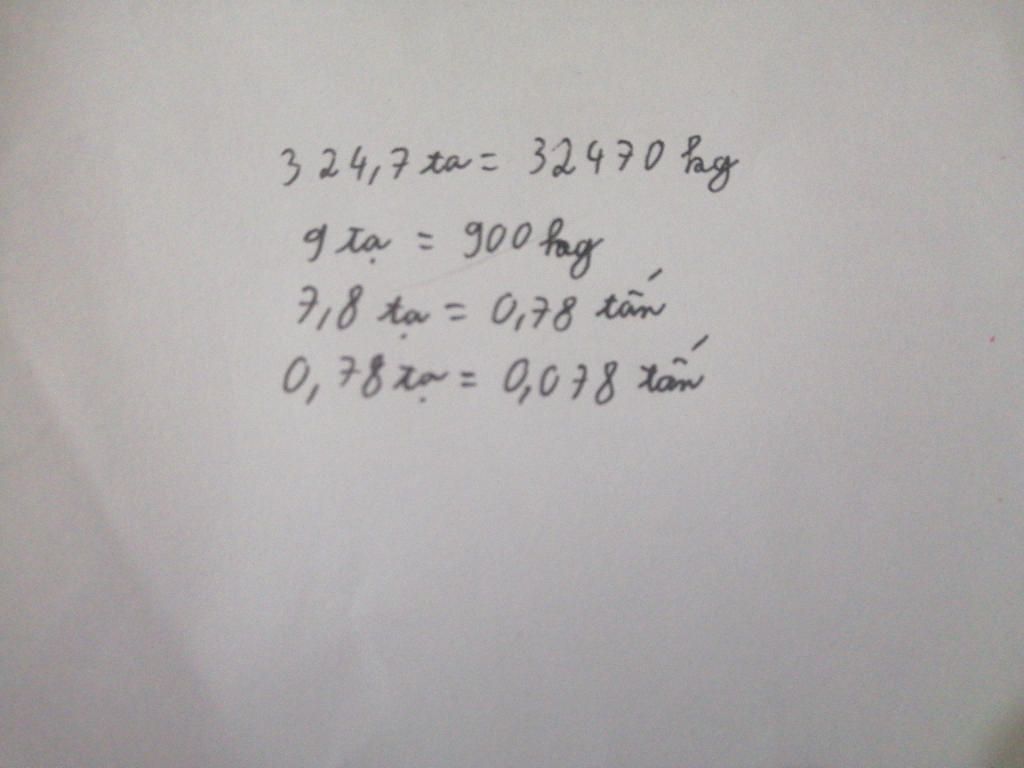 324,7 ta = 32470 kg
9 tạ = 900 kg
7,8 tạ = 0,78 tấn
0,78 tạ = 0,078 tấn